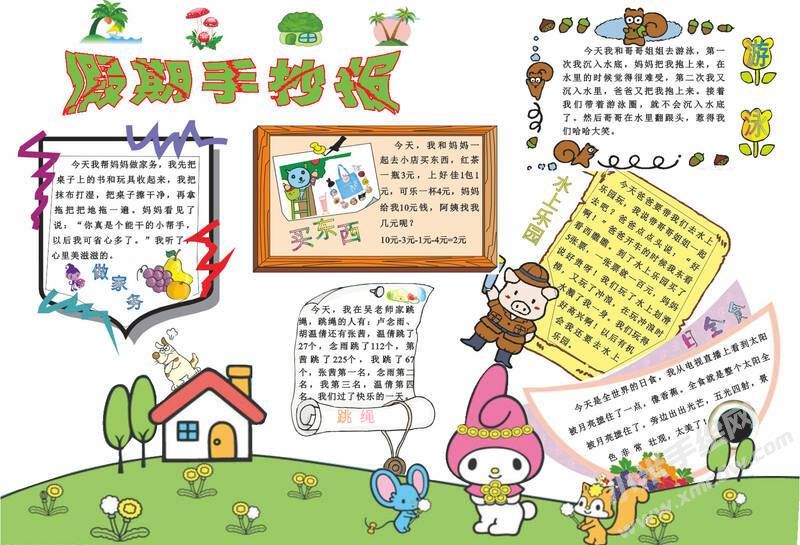 假期手抄报
今天我帮妈妈做家务，我先把
桌子上的书和玩具收起来，我把
抹布打湿，把桌子擦干净，再拿
拖把把地拖一遍。妈妈看见了
说：“你真是个能干的小帮手，
以后我可省心多了。”我听了
心里美滋滋的。
做家务
今天，我和妈妈一
起去小店买东西，红茶
一瓶3元，上好佳1包1
元，可乐一杯4元，妈妈
给我10元钱，阿姨找我
几元呢？
10元-3元-1元-4元=2元
买东西
今天我和哥哥姐姐去游泳，第一
次我沉入水底，妈妈把我拖上来，在
水里的时候觉得很难受，第二次我又
沉入水里，爸爸又把我拖上来。接着
我们带着游泳圈，就不会沉入水底
了。然后哥哥在水里翻跟头，惹得我
们哈哈大笑。
游泳
水上乐园
今天爸爸要带我们去水上
乐园玩，我说带哥哥姐姐一起
去吧？爸爸点点头说：“好
啊！”爸爸开车的时候我东看
看西瞧瞧。到了水上乐园买了
5张票，一张票就一百元，妈妈
说好贵呀！我们玩了水上划带
梯，又玩了冲浪，在玩冲浪时
水溅了我一身，我们玩得
好高兴啊！以后有机
会我还要去水上
乐园。
今天，我在吴老师家跳
绳，跳绳的人有：卢念雨、
胡温倩还有张茜，温倩跳了
27个，念雨跳了112个，第
茜跳了225个，我跳了67
个，张茜第一名，念雨第二
名，我第三名，温倩第四
名，我们过了快乐的一天。
跳绳
日全食
今天是全世界的日食，我从电视直播上看到太阳
被月亮遮住了一点，像香蕉。全食就是整个太阳全
被月亮遮住了，旁边出出光芒，五光四射，景
色非常壮观，太美了！